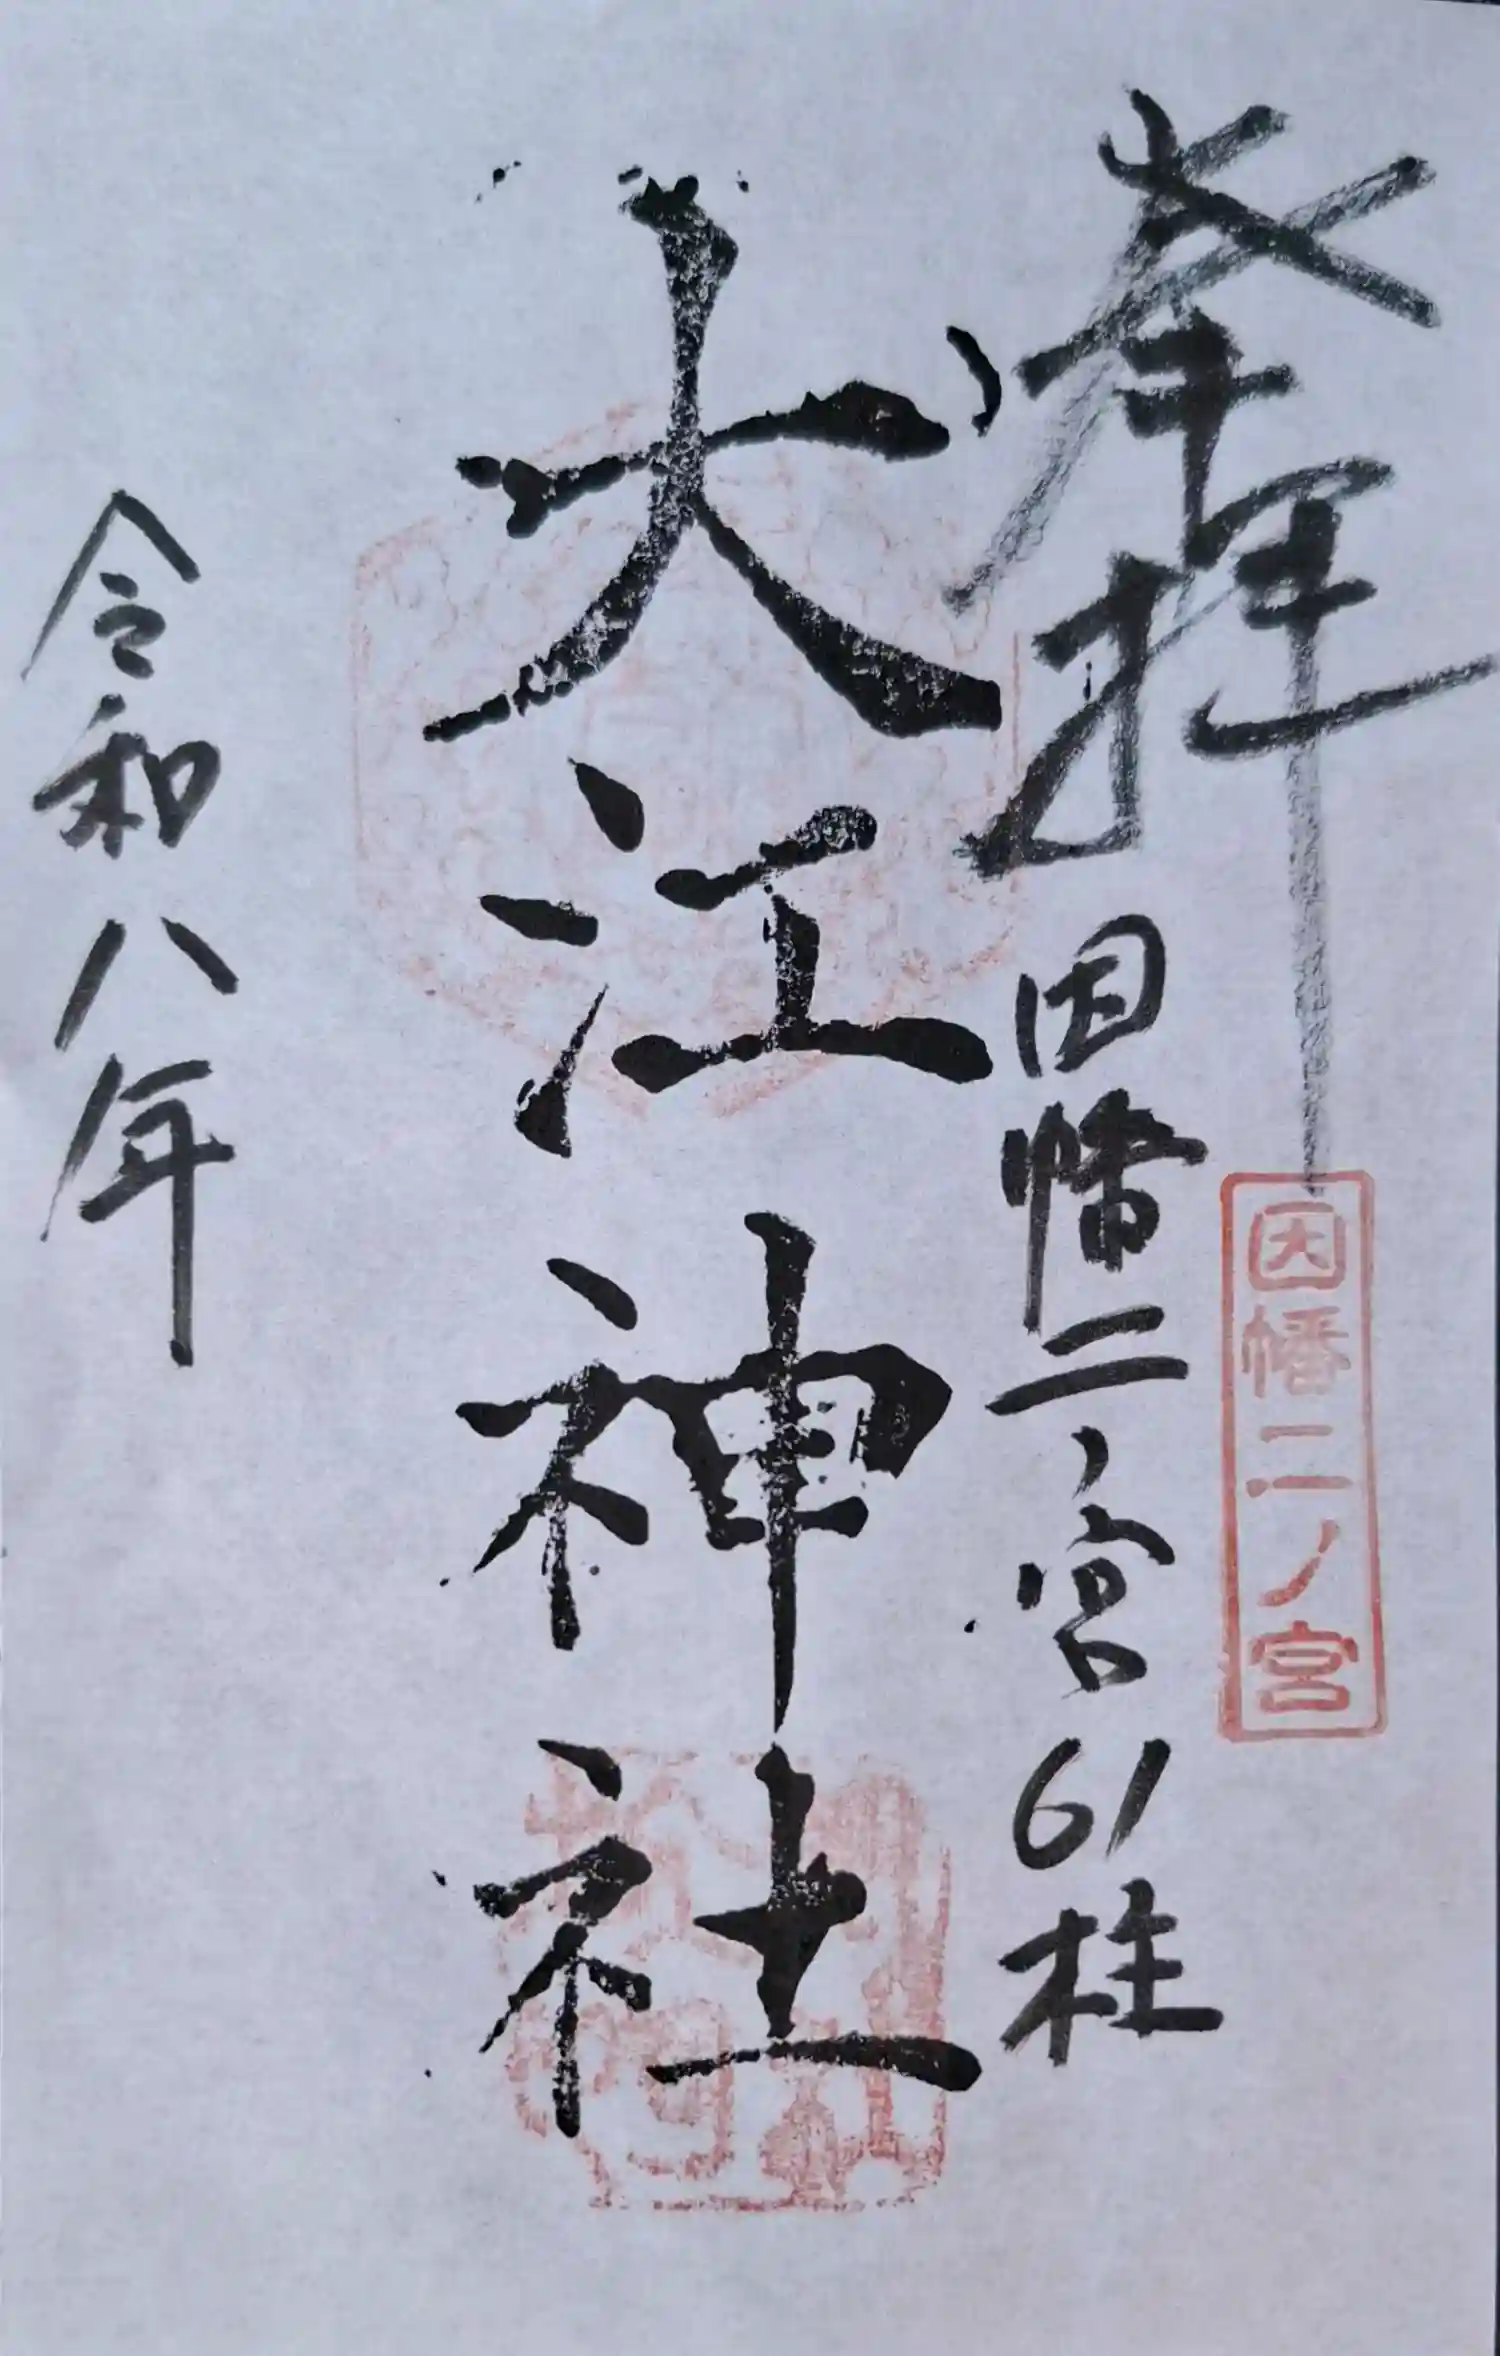 奉拝
因幡二ノ宮
因幡二ノ宮 61柱
大江神社
令和八年